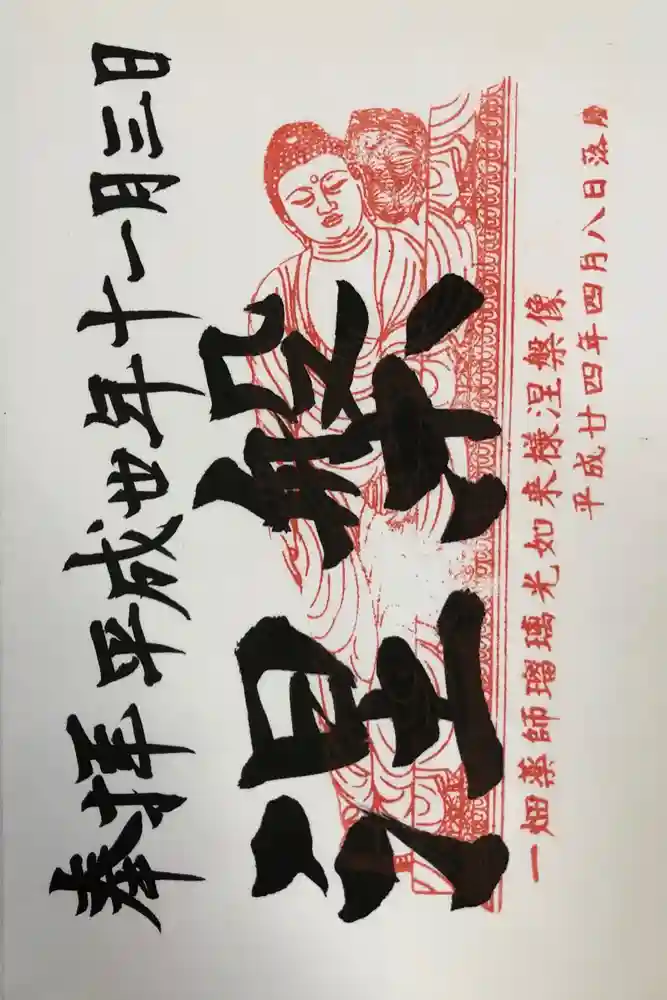 奉拝 平成丗年十一月三日
涅槃
一畑薬師瑠璃光如来様涅槃像
平成廿四年四月八日落